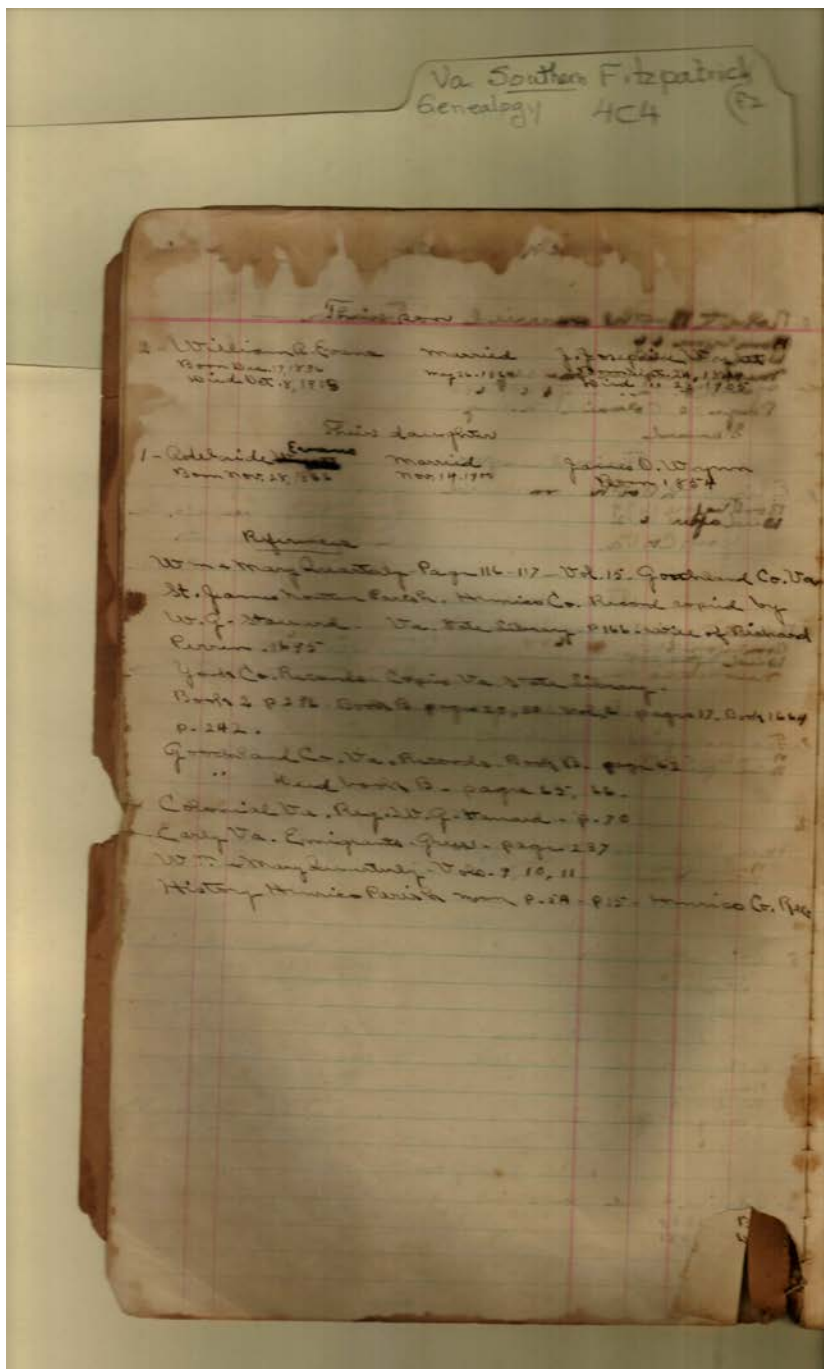 Va Southern Fitzpatrick
Genealogy 4C4 F2
Their son
2 - William Evans married J. Josephine
Born Dec. 17, 1836 May 26. 1864
Died Oct. 8, 1908 Died 23 1925
Their daughter
Evans
1 - Adelaide married James D. Wynn
Born Nov. 28, 1866 Nov. 14. 1900 Born 1854
References
Wm & Mary Quarterly Page 116-117 - Vol. 15. Goochland Co. Va
St. James Parish. Henrico Co. Record copied by
W. G. Stanard. Va. State Library P 166 - of Richard
Perrin. 1695
York Co. Records. Copies Va State Library.
Book 2 p Book B pages Book 1664
p. 242.
Goochland Co. Va. Records. Book B. page 62
" Deed book B - pages 65, 66.
Colonial Va. Reg. W. G. Stanard - p. 70
Early Va. Emigrants. Greer - page 237
Wm & Mary Quarterly - Vols. 9, 10, 11
History Henrico Parish p. - P 15 - Henrico Co. Rec